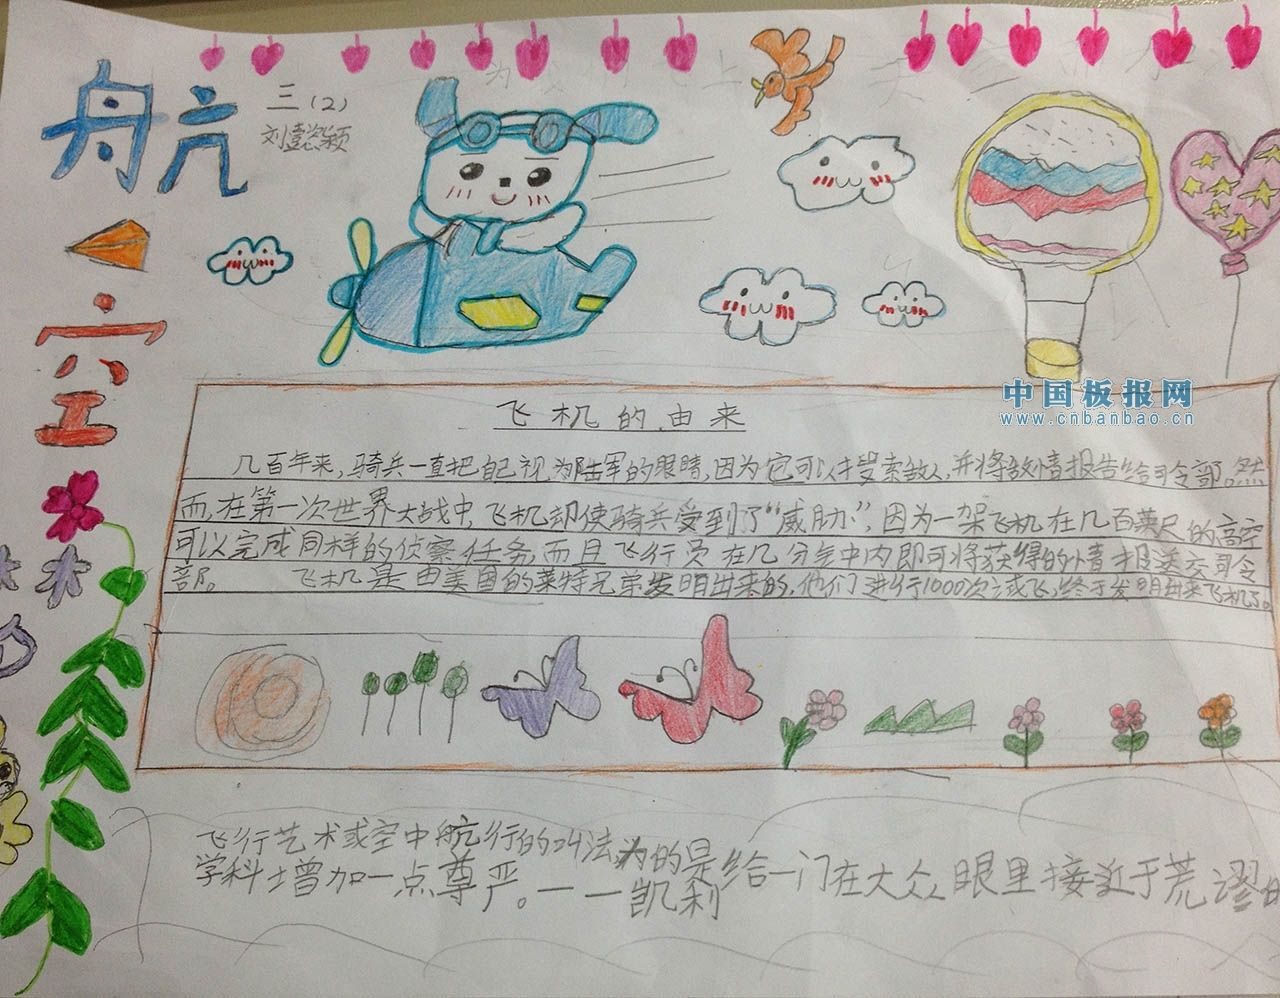 航空
三(2)
刘懿颍
中国板报网
www.cnbanbao.cn
飞机的由来
几百年来,骑兵一直把自己视为陆军的眼睛,因为它可以搜索敌人,并将敌情报告给司令部。然
而,在第一次世界大战中,飞机却使骑兵受到了“威胁”,因为一架飞机在几百英尺的高空
可以完成同样的侦察任务,而且飞行员在几分钟内即可将获得的情报送交司令
部。 飞机是由美国的莱特兄弟发明出来的,他们进行1000次试飞,终于发明出来飞机了。
飞行艺术或空中航行的叫法为的是给一门在大众眼里接近于荒谬的
学科增加一点尊严。——凯利